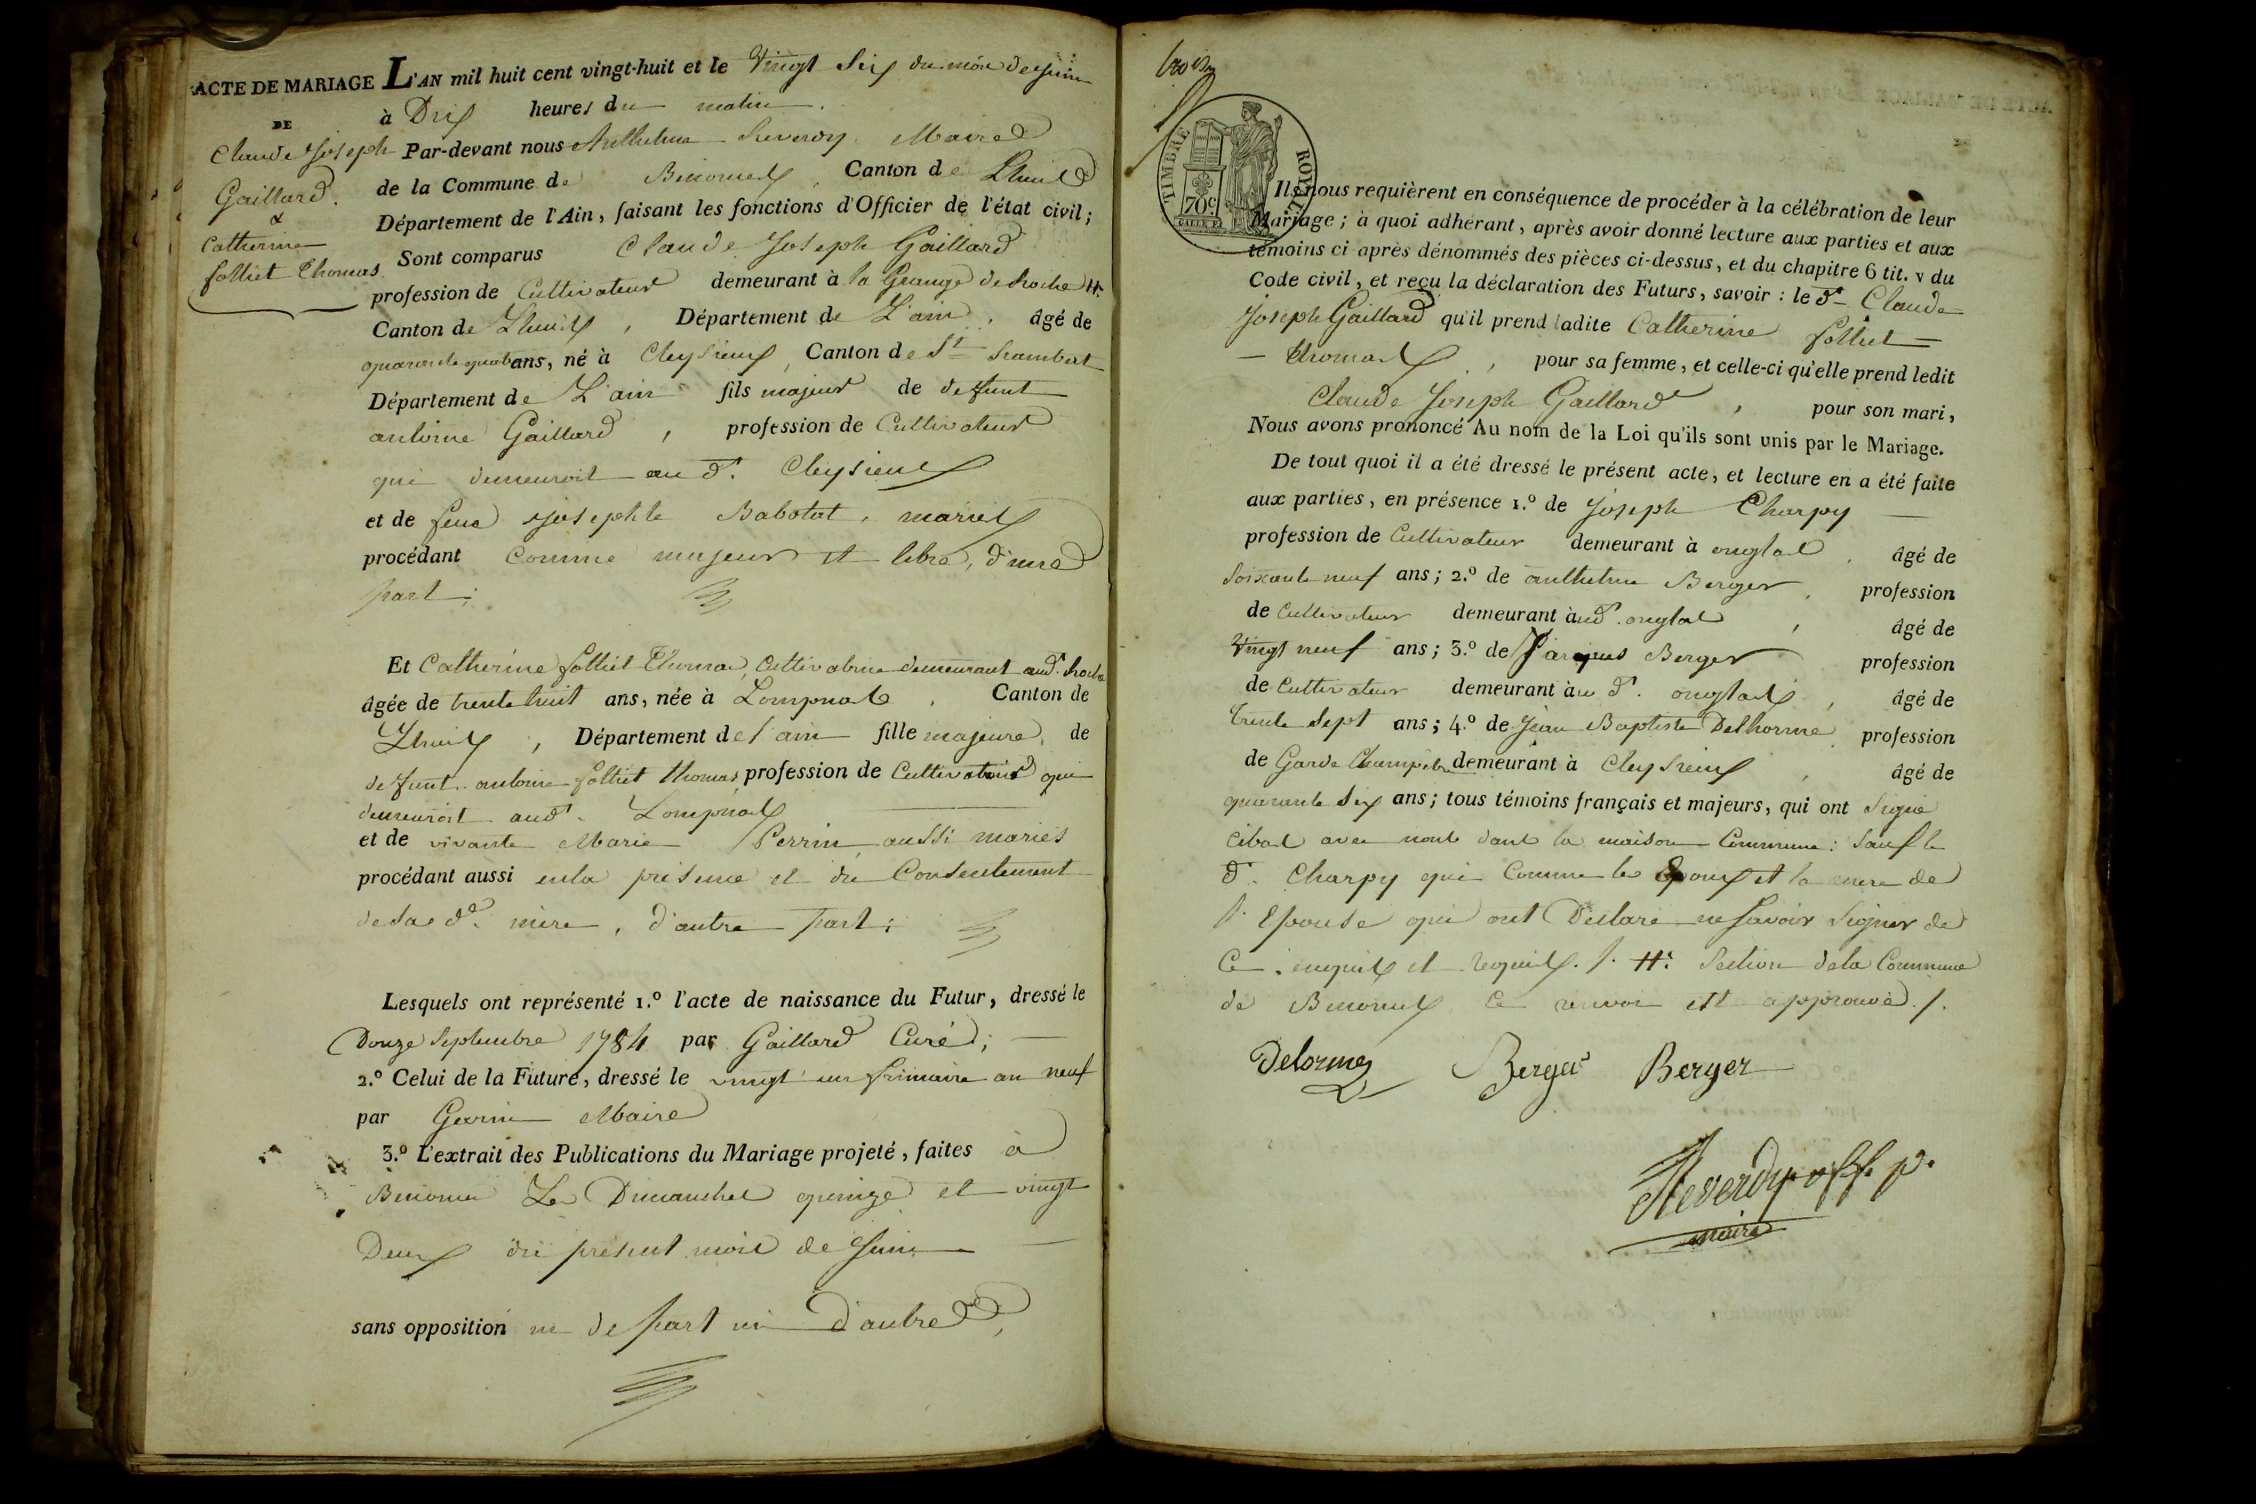 ACTE DE MARIAGE
DE
Claude Joseph
Gaillard.
&
Catherine
folliet Thomas
L'AN mil huit cent vingt-huit et le Vingt Six du mois de Juin
à Dix heures du matin.
Par-devant nous Anthelme Reverdy Maire
de la Commune de Benonces, Canton de Lhuis
Département de l'Ain, faisant les fonctions d'Officier de l'état civil;
Sont comparus Claude Joseph Gaillard
profession de Cultivateur demeurant à la Grange de Roche #.
Canton de Lhuis, Département de L'ain, âgé de
quarante quatre ans, né à Cleyzieux, Canton de St Rambert
Département de L'ain fils majeur de defunt
antoine Gaillard, profession de Cultivateur
qui demeuroit au d. Cleyzieux
et de feue Josephte Babolat, mariés
procédant comme majeur et libre, d'une
part;
Et Catherine folliet Thomas, Cultivatrice demeurant aud. Roche
âgée de trente huit ans, née à Lompnas, Canton de
Lhuis, Département de l'ain fille majeure, de
defunt antoine folliet thomas profession de Cultivateur qui
demeuroit aud. Lompnas
et de vivante Marie Perrin, aussi mariés
procédant aussi en la présence et du Consentement
de sa de. mère, d'autre part;
Lesquels ont représenté 1.º l'acte de naissance du Futur, dressé le
Douze Septembre 1784 par Gaillard Curé;
2.º Celui de la Future, dressé le vingt un frimaire an neuf
par Garin Maire
3.º L'extrait des Publications du Mariage projeté, faites à
Benonces Les Dimanches quinze et vingt
Deux du présent mois de Juin
sans opposition ni de part ni d'autre,
TIMBRE ROYAL
70c
Ils nous requièrent en conséquence de procéder à la célébration de leur
Mariage; à quoi adhérant, après avoir donné lecture aux parties et aux
témoins ci-après dénommés des pièces ci-dessus, et du chapitre 6 tit. v du
Code civil, et reçu la déclaration des Futurs, savoir: le d. Claude
Joseph Gaillard qu'il prend ladite Catherine folliet
thomas, pour sa femme, et celle-ci qu'elle prend ledit
Claude Joseph Gaillard, pour son mari,
Nous avons prononcé Au nom de la Loi qu'ils sont unis par le Mariage.
De tout quoi il a été dressé le présent acte, et lecture en a été faite
aux parties, en présence 1.º de Joseph Charpy
profession de Cultivateur demeurant à onglas, âgé de
soixante neuf ans; 2.º de anthelme Berger, profession
de Cultivateur demeurant à ud. onglas, âgé de
Vingt neuf ans; 3.º de Jacques Berger profession
de Cultivateur demeurant à u d. onglas, âgé de
trente Sept ans; 4.º de Jean Baptiste Delhorme, profession
de Garde Champêtre demeurant à Cleyzieux, âgé de
quarante Six ans; tous témoins français et majeurs, qui ont Signé
avec nous dans la maison Commune: Sauf le
d. Charpy qui Comme les Epoux et la mere de
l'Epouse qui ont Déclaré ne Savoir Signer de
Ce enquis et requis. /. #. Section de la Commune
de Benonces ce renvoi est approuvé /.
Delorme Berger Berger
Reverdy off. p.
maire